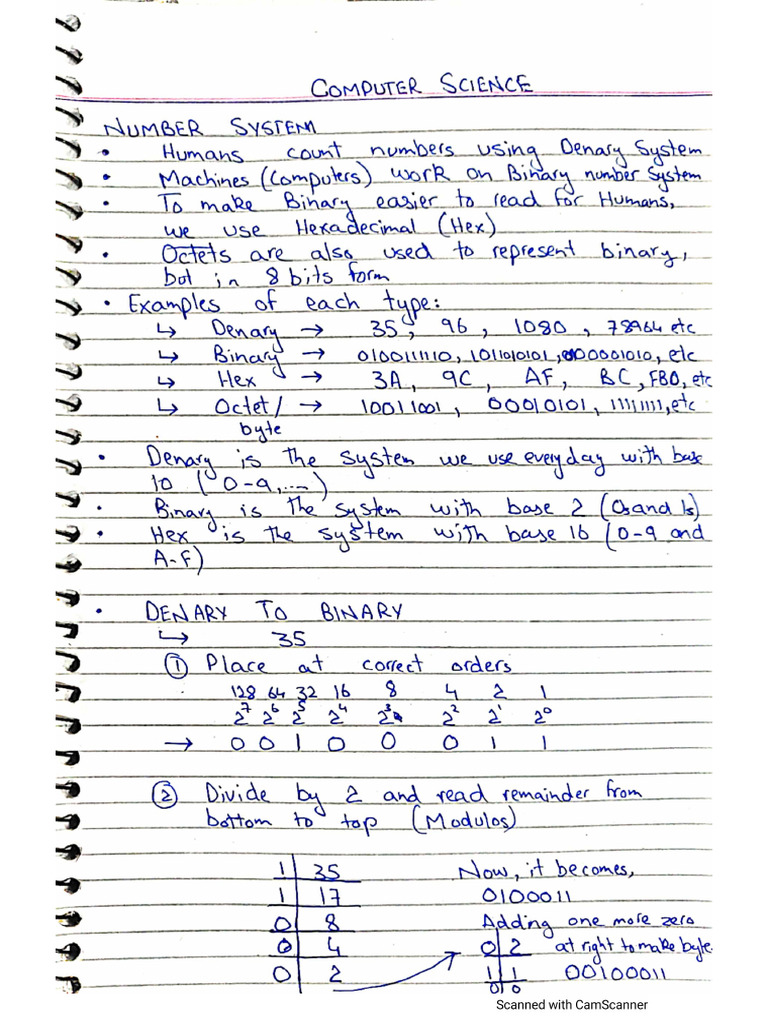 COMPUTER SCIENCE
NUMBER SYSTEM
• Humans count numbers using Denary System
• Machines (Computers) work on Binary number system
• To make Binary easier to read for Humans,
we use Hexadecimal (Hex)
• Octets are also used to represent binary,
but in 8 bits form
• Examples of each type:
↳ Denary → 35, 96, 1080, 78964 etc
↳ Binary → 010011110, 1011010101, 000001010, etc
↳ Hex → 3A, 9C, AF, BC, FB0, etc
↳ Octet/ → 10011001, 00010101, 11111111, etc
byte
• Denary is the system we use everyday with base
10 (0-9,....)
• Binary is the system with base 2 (0s and 1s)
• Hex is the system with base 16 (0-9 and
A-F)
• DENARY TO BINARY
↳ 35
① Place at correct orders
128 64 32 16 8 4 2 1
2⁷ 2⁶ 2⁵ 2⁴ 2³ 2² 2¹ 2⁰
→ 0 0 1 0 0 0 1 1
② Divide by 2 and read remainder from
bottom to top (Modulos)
1 | 35 Now, it becomes,
1 | 17 0100011
0 | 8 Adding one more zero
0 | 4 0 | 2 at right to make byte
0 | 2 1 | 1 00100011
0 | 0
Scanned with CamScanner